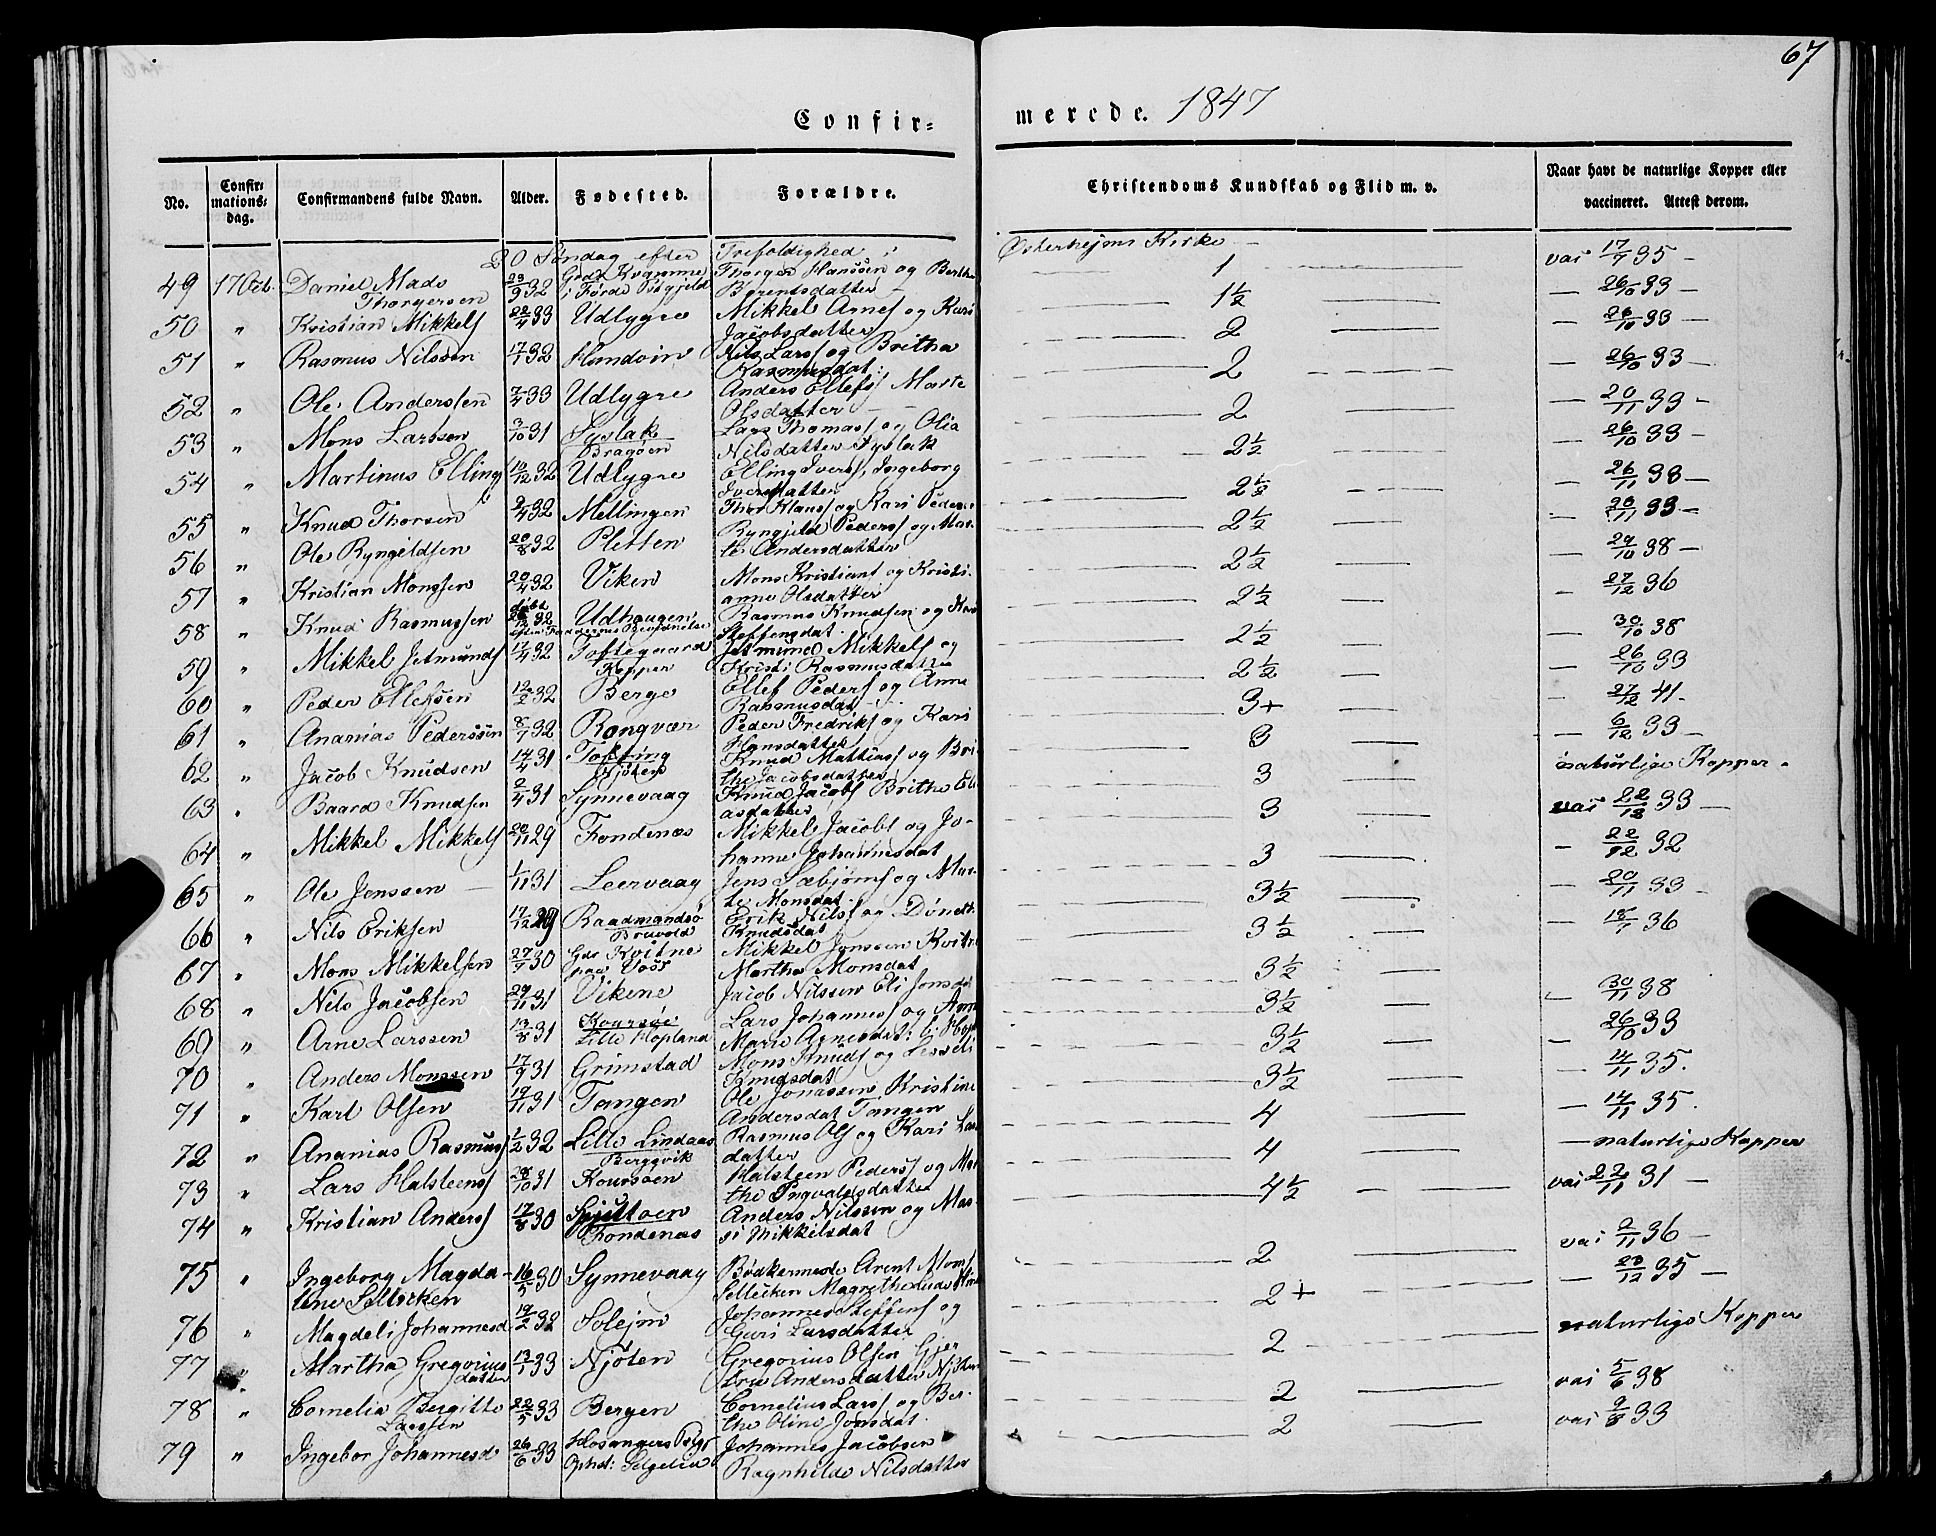 67
Confir-
merede. 1847
No. Confirmationsdag. Confirmandens fulde Navn. Alder. Fødested. Forældre. Christendoms Kundskab og Flid m. v. Naar havt de naturlige Kopper eller vaccineret. Attest derom.
20 Søndag efter Trefoldighed Østerhejms Kirke
49 17 Oct. Daniel Mads Thorgersen 32 Kvamme i Førde Thorger Hanssen og Berthe Berentsdatter 1 vac 17/7 35
50 " Kristian Mikkels 22/4 33 Udlygre Mikkel Arnes og Kari Jacobsdatter 1½ 26/10 33
51 " Rasmus Nilssen 17/1 32 Nils Larss og Britha Rasmusdat: 2 26/10 33
52 " Ole Anderssen 7/4 33 Udlygre Anders Ellefs Marte Olsdatter 2 26/10 33
53 " Mons Larssen 3/10 31 Syslak Dragøen Lars Thomass og Olia Nilsdatter Syslak 2 20/11 33
54 " Martinus Elling 10/12 32 Udlygre Elling Ivers, Ingeborg Iversdatter 2½ 26/10 33
55 " Knud Thorsen 9/4 32 Mellingen Thor Klaus og Kari Peders 2½ 26/11 38
56 " Ole Ryngeldsen 20/8 32 Pletten Ryngjeld Peders og Marte Andersdatter 2½ 26/11 33
57 " Kristian Monssen 20/4 32 Viken Mons Kristians og Kristianne Olsdatter 2½ 29/10 38
58 " Knud Rasmussen døbt 26/12 32 Udhaugen Rasmus Knudsen og Kari Steffensdat. 2½ 27/12 36
59 " Mikkel Jetmunds 17/4 32 Toftegaard Kopper Jetmund Mikkels og Kristi Rasmusdatter 2½ 30/10 38
60 " Peder Ellefsen 12/2 32 Berge Ellef Peders og Anne Rasmusdat 2½ 26/10 33
61 " Ananias Pederssen 8/7 32 Rongvær Peder Fredriks og Kari Hansdatter 3+ 27/12 41
62 " Jacob Knudsen 14/4 31 Njøten Knud Mattias og Brithe Jacobsdatter 3 6/12 33
63 " Baard Knudsen 2/4 31 Synnevaag Knud Jacobs Brithe Eliasdatter 3 naturlige Kopper
64 " Mikkel Mikkels 20/11 29 Fondenæs Mikkel Jacobs og Johanne Johannesdat 3 vac 22/12 33
65 " Ole Jenssen 1/11 31 Leervaag Jens Sæbjørns og Marte Monsdat. 3 22/12 32
66 " Nils Eriksen 17/12 29 Raadmandsø Bruvold Erik Nils og Dorteth Knudsdat 3½ 20/11 33
67 " Mons Mikkelsen 27/7 30 Gdr Kvitne paa Voss Mikkel Jonssen Kvitne Martha Monsdat 3½ 18/7 36
68 " Nils Jacobsen 29/11 31 Vikene Jacob Nilssen Eli Jonsdat 3½
69 " Arne Larssen 13/8 31 Koursøe Lille Hopland Lars Johannes og Anne Marie Arnesdat: 3½ 30/11 38
70 " Anders Monssen 17/9 31 Grimstad Mons Knuds og Lesseli Knudsdat 3½ 26/10 33
71 " Karl Olsen 19/11 31 Tangen Ole Jonassen Kristine Andersdat Tangen 3½ 4/11 35.
72 " Ananias Rasmuss 1/2 32 Lille Lindaas Berggvik Rasmus Ols og Kari Larsdatter 4 14/11 35.
73 " Lars Halsteens 28/10 31 Koursøen Halsteen Peders og Marthe Ingvaldsdatter 4 naturlige Kopper
74 " Kristian Anders 17/8 30 Fondenæs Anders Nilssen og Marsi Mikkelsdat 4½ vac 22/11 31
75 " Ingeborg Magdalene Selleken 16/5 30 Synnevaag Bødkermester Arent Moms Selleiken Magrethe 2 vac 2/11 36
76 " Magdeli Johannesd 19/2 32 Solejm Johannes Steffens og Guri Larsdatter 2+ 23/12 35
77 " Martha Gregorius datter 13/1 33 Njøten Gregorius Olsen Gjertru Andersdatter Njøten 2 naturlige Kopper
78 " Cornelia Bergitte Larssen 22/5 33 Bergen Cornelius Larss og Berthe Oline Jonsdat. 2 vac 5/6 38
79 " Ingebor Johannesd 26/6 33 Hosangers Præstg Johannes Jacobsen Ragnhilde Nilsdatter 2 vac 9/8 33